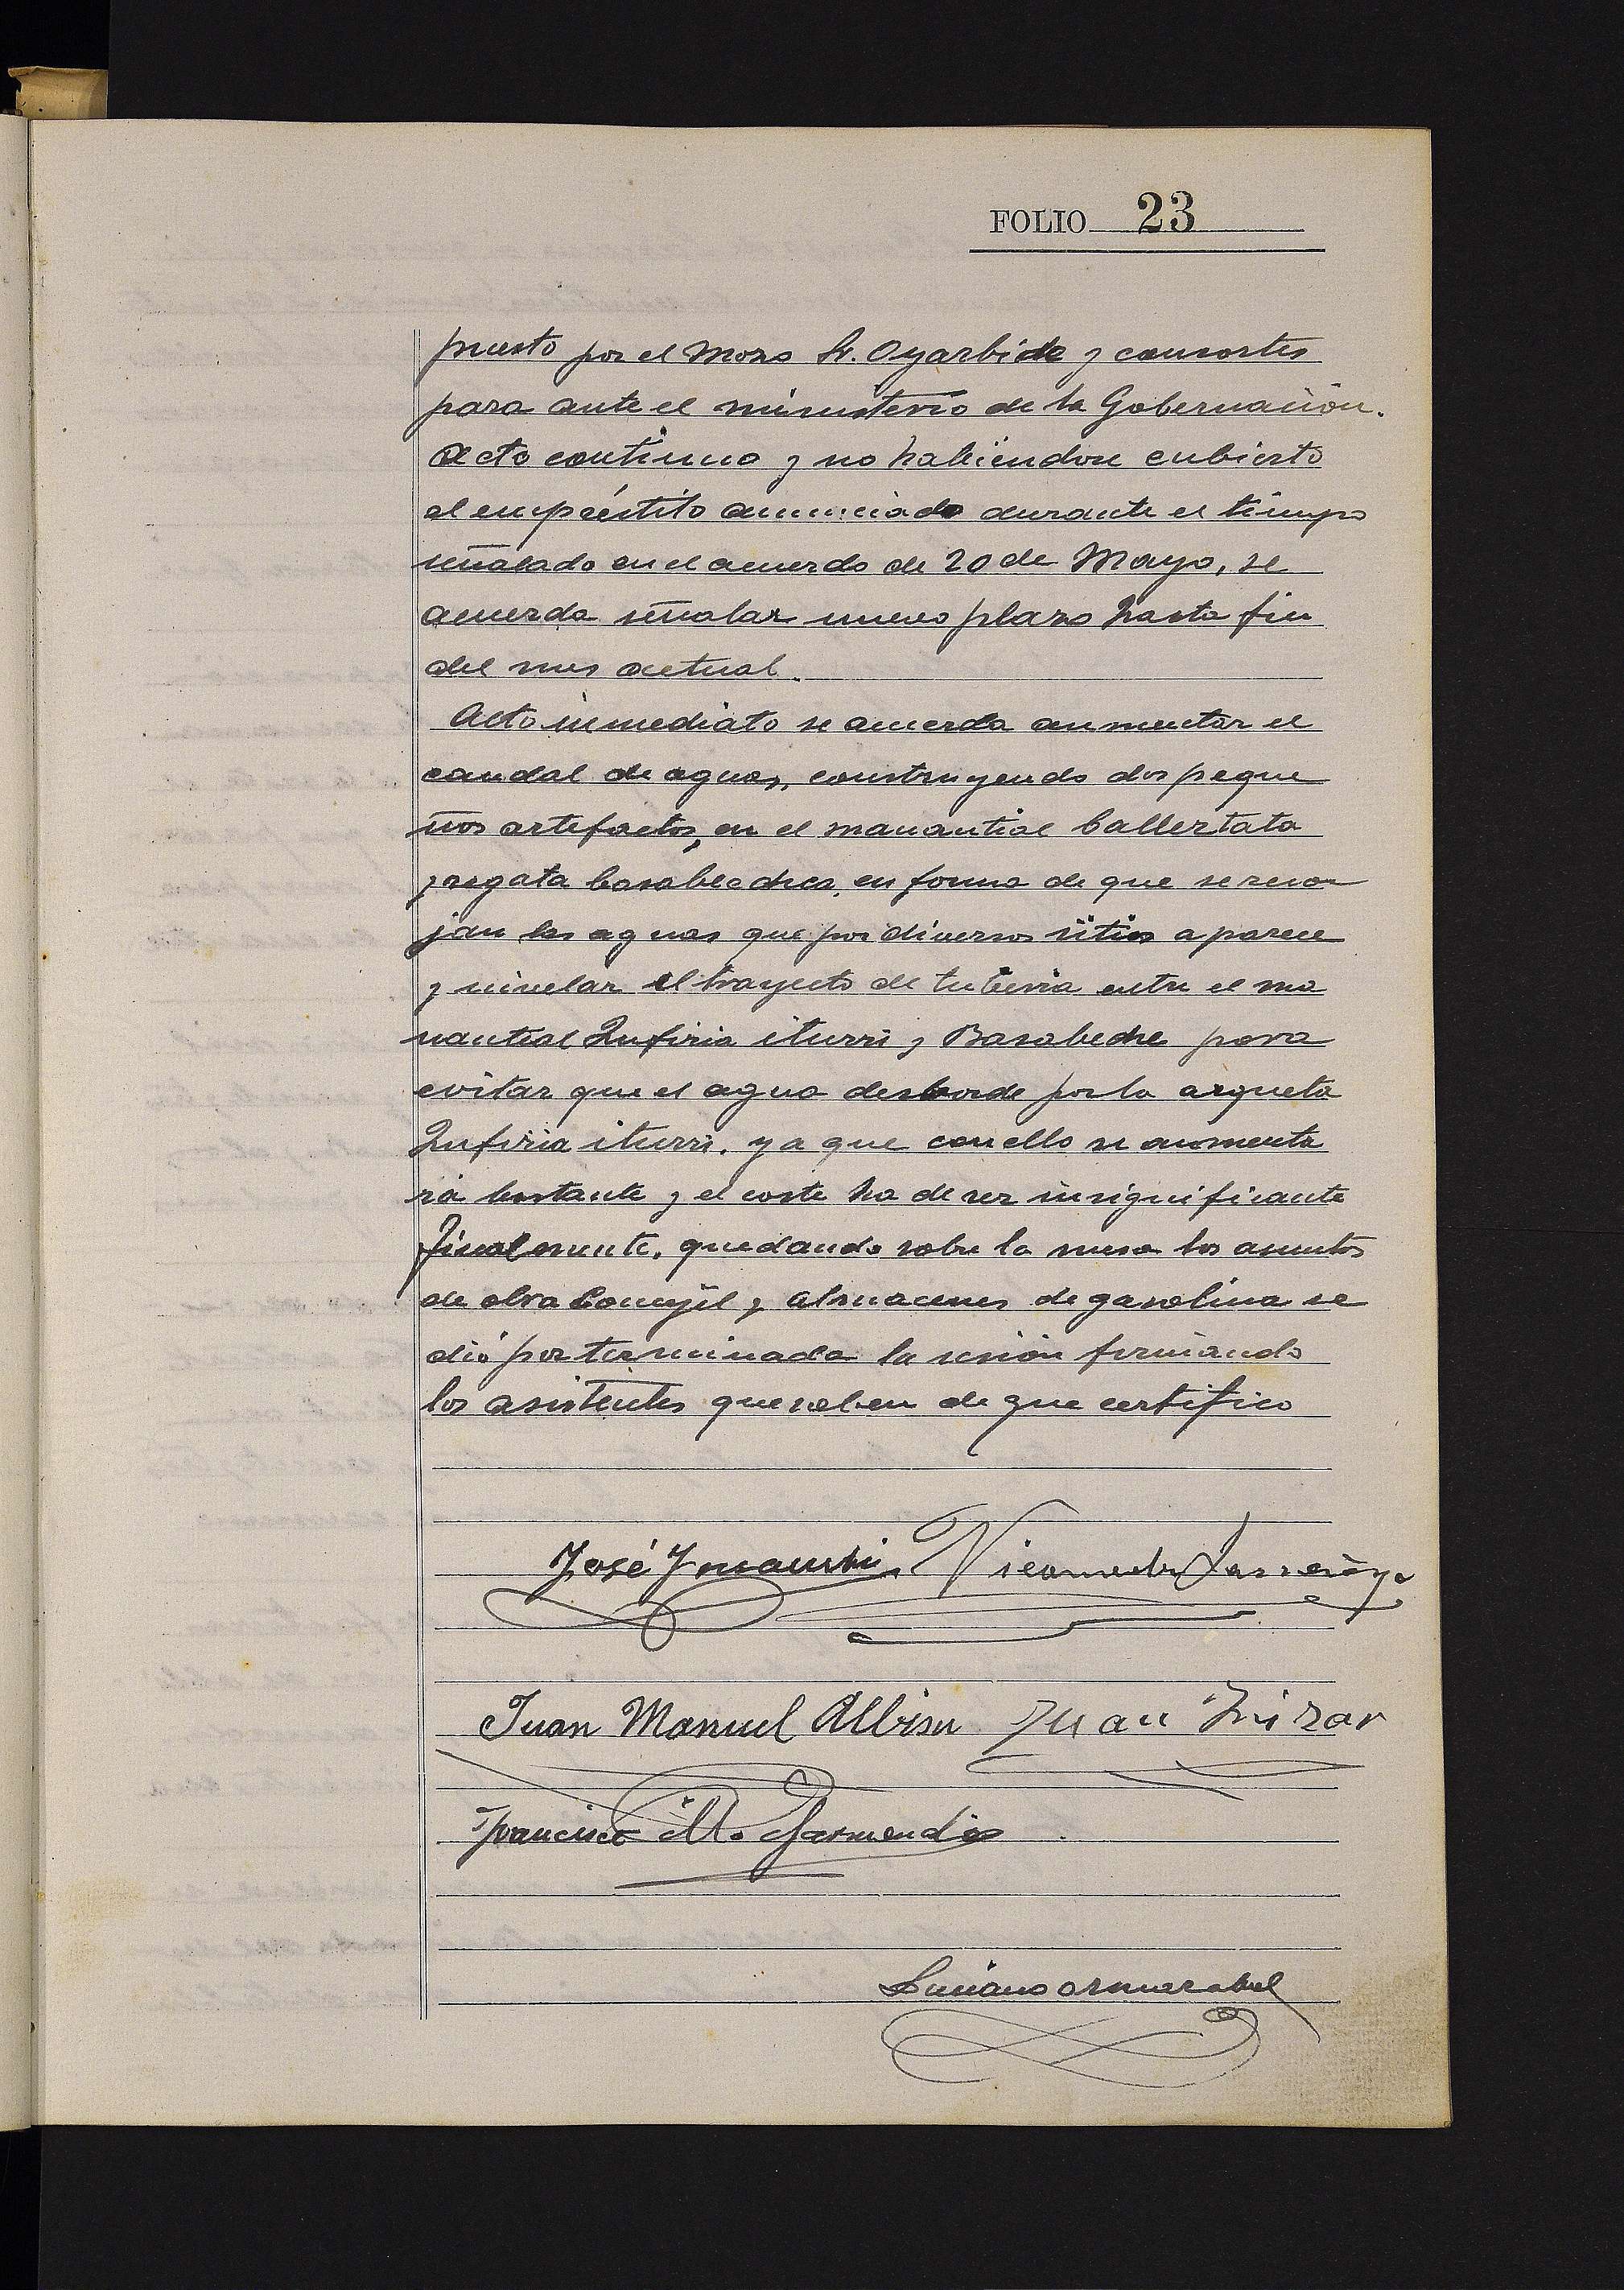 FOLIO 23
puesto por el mozo Sr. Oyarbide y consortes
para ante el ministerio de la Gobernación.
Acto continuo y no habiendose cubierto
el empréstito anunciado durante el tiempo
señalado en el acuerdo de 20 de Mayo, se
acuerda señalar nuevo plazo hasta fin
del mes actual.
Acto inmediato se acuerda aumentar el
caudal de aguas, construyendo dos peque
ños artefactos, en el manantial
y regata Basabechea, en forma de que se reco
jan las aguas que por diversos sitios aparece
y nivelar el trayecto de tuberia entre el ma
nantial iturri y Basabeche para
evitar que el agua desborde por la arqueta
iturri, ya que con ello se aumenta
rá bastante y el coste ha de ser insignificante
Finalmente, quedando sobre la mesa los asuntos
de obra Concejil y almacenes de gasolina se
dió por terminada la sesión firmando
los asistentes que saben de que certifico
José Ymaurbi Nicomedes Larrañaga
Juan Manuel Albisu Juan
Francisco M. Garmendia
Luciano